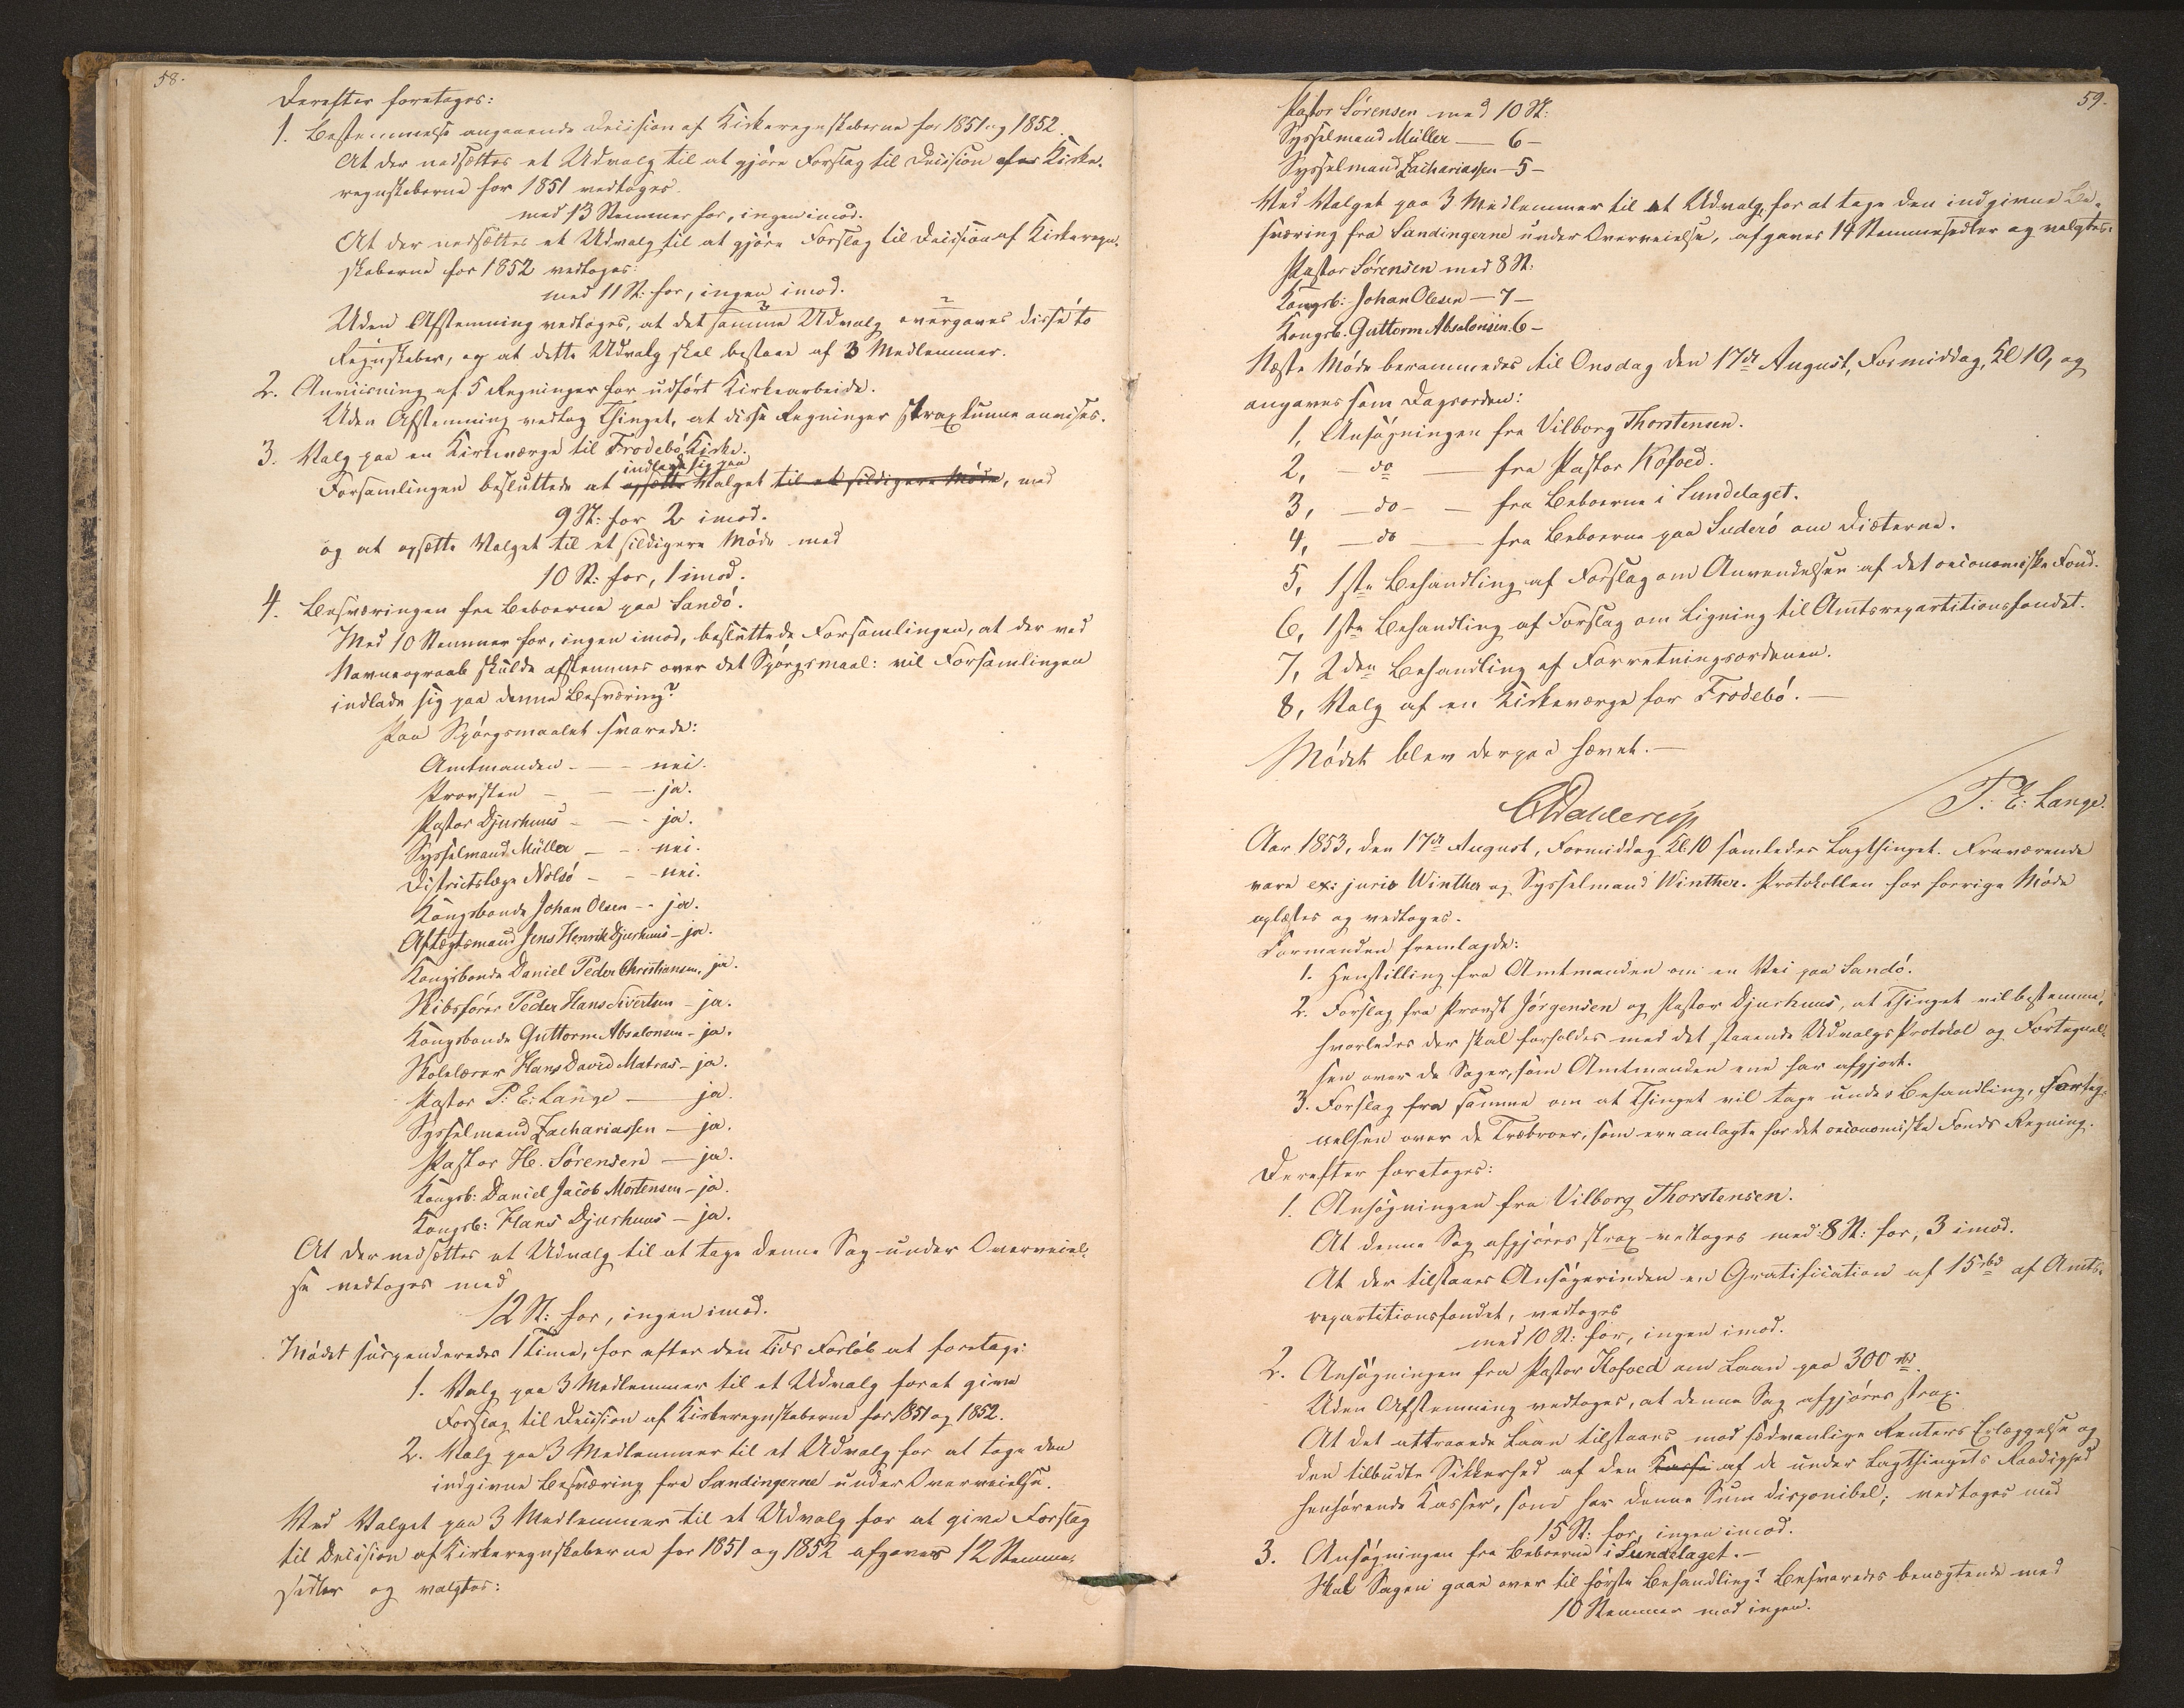 58.
Derefter foretoges:
1. Bestemmelse angaaende Decision af Kirkeregnskaberne for 1851 og 1852.
At der nedsættes et Udvalg til at gjøre Forslag til Decision af Kirke-
regnskaberne for 1851 vedtoges.
med 13 Stemmer for, ingen imod.
At der nedsættes et Udvalg til at gjøre Forslag til Decision af Kirkeregn-
skaberne for 1852 vedtoges:
med 11 St: for, ingen imod.
Uden Afstemning vedtoges, at det samme Udvalg overgaves disse to
Regnskaber, og at dette Udvalg skal bestaae af 3 Medlemmer.
2. Anviisning af 5 Regninger for udført Kirkearbeide.
Uden Afstemning vedtog Thinget, at disse Regninger strax kunne anvises.
3. Valg paa en Kirkeværge til Frodebø Kirke.
indlade sig paa
Forsamlingen besluttede at opsætte Valget til et sildigere Møde, med
9 St: for 2 imod.
og at opsætte Valget til et sildigere Møde med
10 St: for, 1 imod.
4. Besværingen fra Beboerne paa Sandø.
Med 10 Stemmer for, ingen imod, besluttede Forsamlingen, at der ved
Navneopraab skulde afstemmes over det Spørgsmaal: vil Forsamlingen
indlade sig paa denne Besværing?
Paa Spørgsmaalet svarede:
Amtmanden - - - nei.
Provsten - - - ja.
Pastor Djurhuus - - - ja.
Sysselmand Müller - - nei.
Districtslæge Nolsø - - - nei.
Kongsbonde Johan Olsen - - ja.
Aftægtsmand Jens Henrik Djurhuus - ja.
Kongsbonde Daniel Peder Christiansen, ja.
Skibsfører Peder Hans Sivertsen - ja.
Kongsbonde Guttorm Absalonsen - ja.
Skolelærer Hans David Matras - ja.
Pastor P. E. Lange - ja.
Sysselmand Zachariassen - ja.
Pastor H. Sørensen - ja.
Kongsb: Daniel Jacob Mortensen - ja.
Kongsb: Hans Djurhuus - ja.
At der nedsættes et Udvalg til at tage denne Sag under Overveiel-
se vedtoges med
12 St: for, ingen imod.
Mødet suspenderedes 1 Time, for efter den Tids Forløb at foretage:
1. Valg paa 3 Medlemmer til et Udvalg for at give
Forslag til Decision af Kirkeregnskaberne for 1851 og 1852.
2. Valg paa 3 Medlemmer til et Udvalg for at tage den
indgivne Besværing fra Sandingerne under Overveielse.
Ved Valget paa 3 Medlemmer til et Udvalg for at give Forslag
til Decision af Kirkeregnskaberne for 1851 og 1852 afgaves 12 Stemme-
sedler og valgtes:
59.
Pastor Sørensen med 10 St:
Sysselmand Müller - 6 -
Sysselmand Zachariassen - 5 -
Ved Valget paa 3 Medlemmer til et Udvalg, for at tage den indgivne Be-
sværing fra Sandingerne under Overveielse, afgaves 14 Stemmesedler og valgtes:
Pastor Sørensen med 8 St.
Kongsb: Johan Olesen - 7 -
Kongsb. Guttorm Absalonsen. 6 -
Næste Møde berammedes til Onsdag den 17de August, Formiddag, Kl 10, og
angaves som Dagsorden:
1, Ansøgningen fra Vilborg Thorstensen.
2, - do - fra Pastor Kofoed.
3, - do - - fra Beboerne i Sundelaget.
4, - do - fra Beboerne paa Suderø om Diæterne.
5, 1ste Behandling af Forslag om Anvendelsen af det oeconomiske Fond.
6, 1ste Behandling af Forslag om Ligning til Amtsrepartitionsfondet.
7, 2den Behandling af Forretningsordenen.
8, Valg af en Kirkeværge for Frodebø. -
Mødet blev derpaa hævet. -
CDahlerup
P. E. Lange.
Aar 1853, den 17de August, Formiddag Kl. 10 samledes Lagthinget. Fraværende
vare ex: juris Winther og Sysselmand Winther. Protokollen for forrige Møde
oplæstes og vedtoges.
Formanden fremlagde:
1. Henstilling fra Amtmanden om en Vei paa Sandø.
2. Forslag fra Provst Jørgensen og Pastor Djurhuus, at Thinget vil bestemme,
hvorledes der skal forholdes med det staaende Udvalgs Protokol og Fortegnel-
sen over de Sager, som Amtmanden ene har afgjort.
3. Forslag fra samme om at Thinget vil tage under Behandling, Forteg-
nelsen over de Træbroer, som ere anlagte for det oeconomiske Fonds Regning.
Derefter foretoges:
1. Ansøgningen fra Vilborg Thorstensen.
At denne Sag afgjøres strax vedtoges med 8 St: for, 3 imod.
At der tilstaaes Ansøgerinden en Gratification af 15 rbd af Amts-
repartitionsfondet, vedtoges
med 10 St: for, ingen imod.
2. Ansøgningen fra Pastor Kofoed om Laan paa 300 rbd.
Uden Afstemning vedtoges, at denne Sag afgjøres strax.
At det attraaede Laan tilstaaes mod sædvanlige Renters Erlæggelse og
den tilbudte Sikkerhed af den Kasse af de under Lagthingets Raadighed
henhørende Kasser, som har denne Sum disponibel; vedtoges med
15 St: for, ingen imod.
3. Ansøgningen fra Beboerne i Sundelaget. -
Skal Sagen gaae over til første Behandling? Besvaredes benægtende med
10 Stemmer mod ingen.